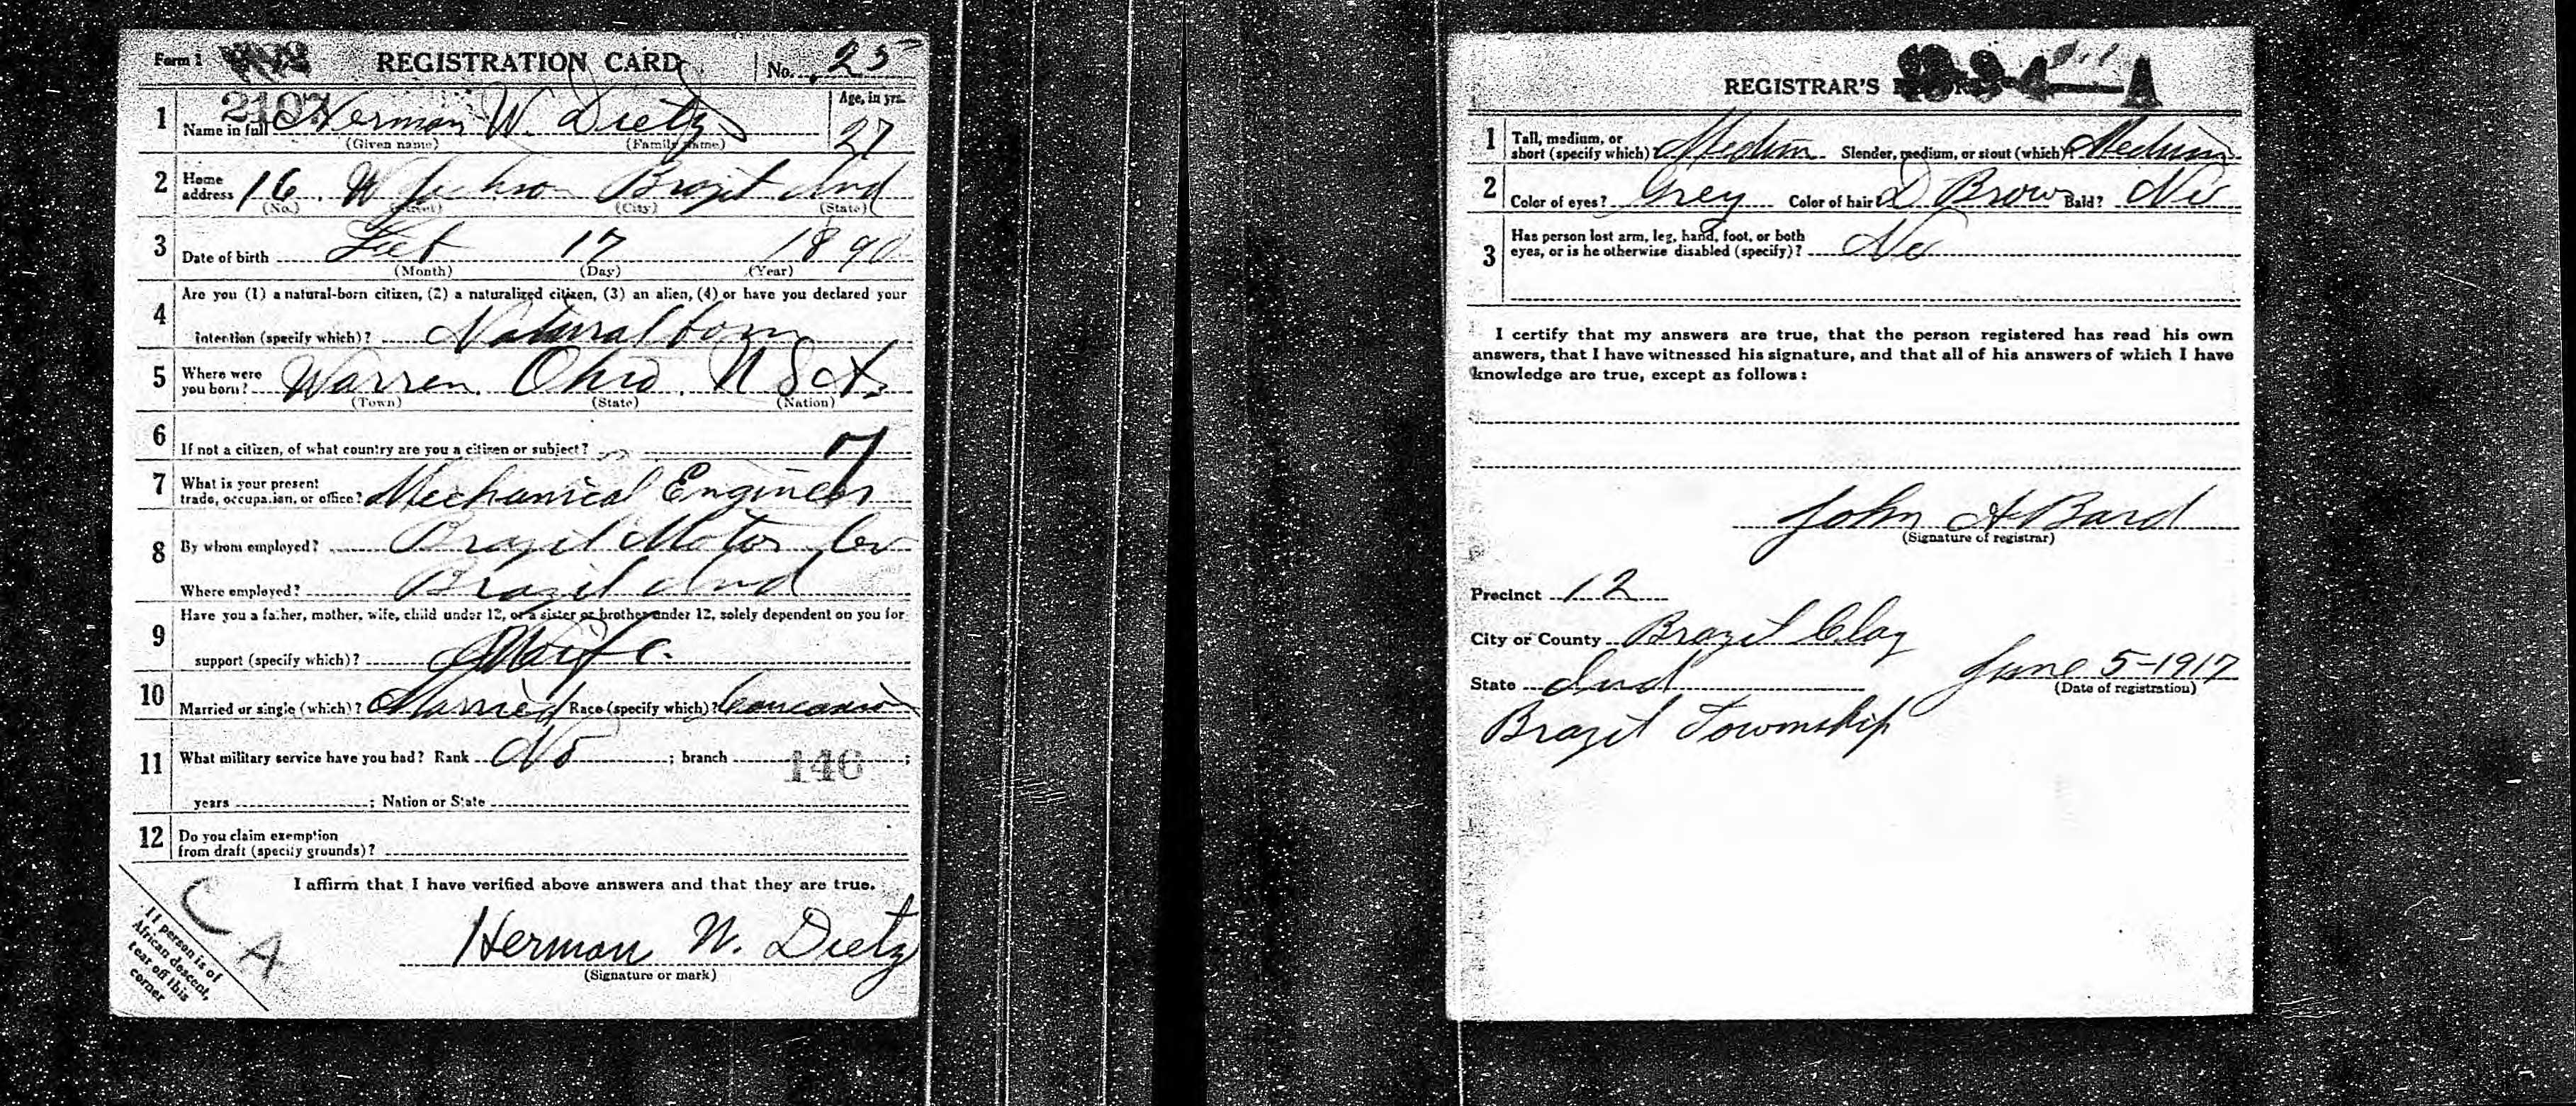 Form 1 REGISTRATION CARD No. 25
2107
1 Name in full Herman W. Dietz Age, in yrs. 27
(Given name) (Family name)
2 Home address 16 W Jackson Brazil Ind
(No.) (Street) (City) (State)
3 Date of birth Feb 17 1890
(Month) (Day) (Year)
4 Are you (1) a natural-born citizen, (2) a naturalized citizen, (3) an alien, (4) or have you declared your
intention (specify which)? Natural born
5 Where were you born? Warren Ohio U S A
(Town) (State) (Nation)
6 If not a citizen, of what country are you a citizen or subject?
7 What is your present
trade, occupation, or office? Mechanical Engineer
8 By whom employed? Brazil Motor Co
Where employed? Brazil Ind
9 Have you a father, mother, wife, child under 12, or a sister or brother under 12, solely dependent on you for
support (specify which)? Wife
10 Married or single (which)? Married Race (specify which)? Caucasian
11 What military service have you had? Rank No ; branch 146 ;
years ; Nation or State
12 Do you claim exemption
from draft (specify grounds)?
I affirm that I have verified above answers and that they are true.
C A
Herman W. Dietz
(Signature or mark)
If person is of
African descent,
tear off this
corner
REGISTRAR'S A
1 Tall, medium, or
short (specify which)? Medium Slender, medium, or stout (which)? Medium
2 Color of eyes? Grey Color of hair? D Brown Bald? No
3 Has person lost arm, leg, hand, foot, or both
eyes, or is he otherwise disabled (specify)? No
I certify that my answers are true, that the person registered has read his own
answers, that I have witnessed his signature, and that all of his answers of which I have
knowledge are true, except as follows:
John A Bard
(Signature of registrar)
Precinct 12
City or County Brazil Clay
State Ind June 5-1917
(Date of registration)
Brazil Township